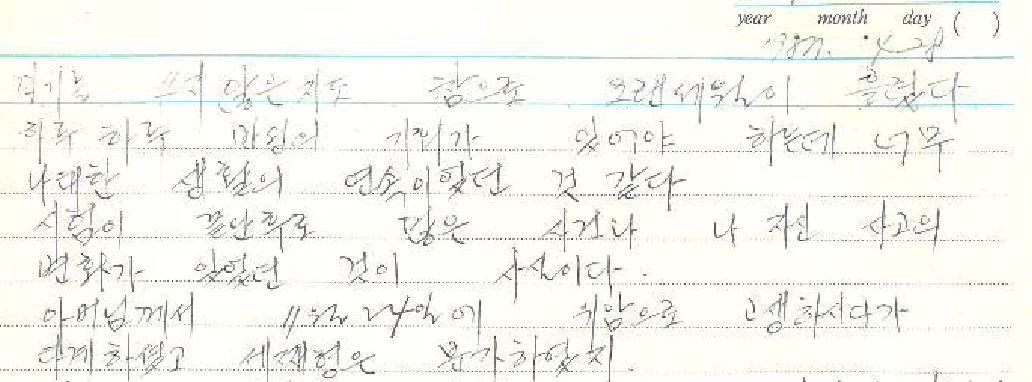 year month day ( )
1987. 4 28
일기를 쓰지 않은지도 참으로 오랜세월이 흘렀다
하루 하루 마음의 거리가 있어야 하는데 너무
나태한 생활의 연속이었던 것 같다
시험이 끝난후로 많은 사건과 나 자신 사고의
변화가 있었던 것이 사실이다.
아버님께서 11월 24일에 위암으로 고생하시다가
타계하셨고 세째형은 분가하였지